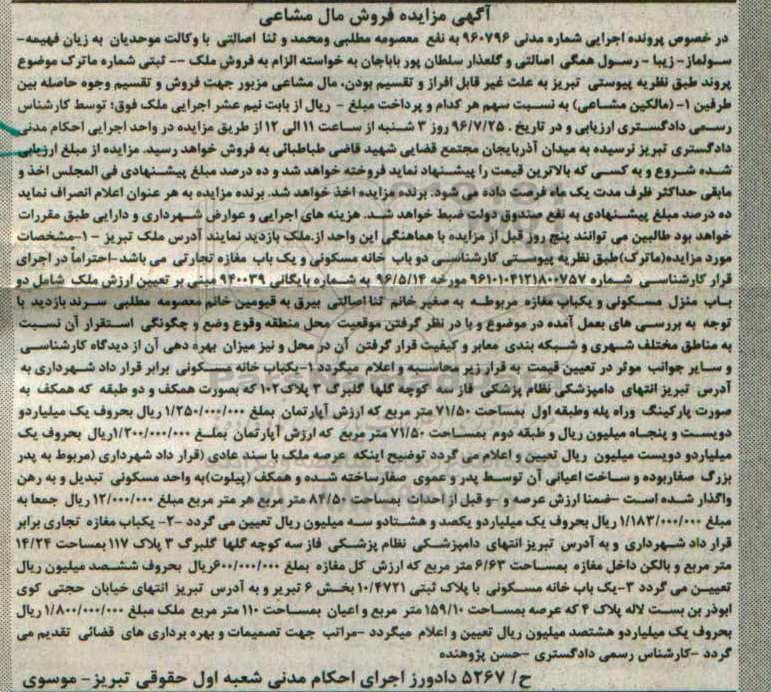 آگهی مزایده فروش مال مشاعی
در خصوص پرونده اجرایی شماره مدنی ۹۶۰۷۹۶ به نفع معصومه مطلبی ومحمد و ثنا اصالتی با وکالت موحدیان به زیان فهیمه-
سولماز- زیبا - رسول همگی اصالتی و گلعذار سلطان پور باباجان به خواسته الزام به فروش ملک -- ثبتی شماره ماترک موضوع
پروند طبق نظریه پیوستی تبریز به علت غیر قابل افراز و تقسیم بودن، مال مشاعی مزبور جهت فروش و تقسیم وجوه حاصله بین
طرفین ۱- (مالکین مشاعی) به نسبت سهم هر کدام و پرداخت مبلغ - ریال از بابت نیم عشر اجرایی ملک فوق؛ توسط کارشناس
رسمی دادگستری ارزیابی و در تاریخ . ۹۶/۷/۲۵ روز ۳ شنبه از ساعت ۱۱ الی ۱۲ از طریق مزایده در واحد اجرایی احکام مدنی
دادگستری تبریز نرسیده به میدان آذربایجان مجتمع قضایی شهید قاضی طباطبائی به فروش خواهد رسید. مزایده از مبلغ ارزیابی
شده شروع و به کسی که بالاترین قیمت را پیشنهاد نماید فروخته خواهد شد و ده درصد مبلغ پیشنهادی فی المجلس اخذ و
مابقی حداکثر ظرف مدت یک ماه فرصت داده می شود. برنده مزایده اخذ خواهد شد. برنده مزایده به هر عنوان اعلام انصراف نماید
ده درصد مبلغ پیشنهادی به نفع صندوق دولت ضبط خواهد شد. هزینه های اجرایی و عوارض شهرداری و دارایی طبق مقررات
خواهد بود طالبین می توانند پنج روز قبل از مزایده با هماهنگی این واحد از.ملک بازدید نمایند آدرس ملک تبریز - ۱-مشخصات
مورد مزایده(ماترک)طبق نظریه پیوستی کارشناسی دو باب خانه مسکونی و یک باب مغازه تجارتی می باشد-احتراماً در اجرای
قرار کارشناسی شماره ۹۶۱۰۱۰۴۱۲۱۸۰۰۷۵۷ مورخه ۹۶/۵/۱۴ به شماره بایگانی ۹۴۰۰۳۹ مبنی بر تعیین ارزش ملک شامل دو
باب منزل مسکونی و یکباب مغازه مربوطه به صغیر خانم ثنا اصالتی بیرق به قیومین خانم معصومه مطلبی سرند بازدید با
توجه به بررسی های بعمل آمده در موضوع و با در نظر گرفتن موقعیت محل منطقه وقوع وضع و چگونگی استقرار آن نسبت
به مناطق مختلف شهری و شبکه بندی معابر و کیفیت قرار گرفتن آن در محل و نیز میزان بهره دهی آن از دیدگاه کارشناسی
و سایر جوانب موثر در تعیین قیمت به قرار زیر محاسبه و اعلام میگردد ۱-یکباب خانه مسکونی برابر قرار داد شهرداری به
آدرس تبریز انتهای دامپزشکی نظام پزشکی فاز سه کوچه گلها گلبرگ ۳ پلاک۱۰۲ که بصورت همکف و دو طبقه که همکف به
صورت پارکینگ وراه پله وطبقه اول بمساحت ۷۱/۵۰ متر مربع که ارزش آپارتمان بملغ ۱/۲۵۰/۰۰۰/۰۰۰ ریال بحروف یک میلیاردو
دویست و پنجاه میلیون ریال و طبقه دوم بمساحت ۷۱/۵۰ متر مربع که ارزش آپارتمان بملغ ۱/۲۰۰/۰۰۰/۰۰۰ریال بحروف یک
میلیاردو دویست میلیون ریال تعیین و اعلام می گردد توضیح اینکه عرصه ملک با سند عادی (قرار داد شهرداری (مربوط به پدر
بزرگ صغاربوده و ساخت اعیانی آن توسط پدر و عموی صغارساخته شده و همکف (پیلوت)به واحد مسکونی تبدیل و به رهن
واگذار شده است -ضمنا ارزش عرصه و -و قبل از احداث بمساحت ۸۴/۵۰ متر مربع هر متر مربع مبلغ ۱۲/۰۰۰/۰۰۰ ریال جمعا به
مبلغ ۱/۱۸۳/۰۰۰/۰۰۰ ریال بحروف یک میلیاردو یکصد و هشتادو سه میلیون ریال تعیین می گردد -۲- یکباب مغازه تجاری برابر
قرار داد شهرداری و به آدرس تبریز انتهای دامپزشکی نظام پزشکی فاز سه کوچه گلها گلبرگ ۳ پلاک ۱۱۷ بمساحت ۱۴/۲۴
متر مربع و بالکن داخل مغازه بمساحت ۶/۶۳ متر مربع که ارزش کل مغازه بملغ ۶۰۰/۰۰۰/۰۰۰ریال بحروف ششصد میلیون ریال
تعیین می گردد ۳-یک باب خانه مسکونی با پلاک ثبتی ۱۰/۴۷۲۱ بخش ۶ تبریر و به آدرس تبریز انتهای خیابان حجتی کوی
ابوذر بن بست لاله پلاک ۴ که عرصه بمساحت ۱۵۹/۱۰ متر مربع و اعیان بمساحت ۱۱۰ متر مربع ملک مبلغ ۱/۸۰۰/۰۰۰/۰۰۰ ریال
بحروف یک میلیاردو هشتصد میلیون ریال تعیین و اعلام میگردد -مراتب جهت تصمیمات و بهره برداری های قضائی تقدیم می
گردد -کارشناس رسمی دادگستری -حسن پژوهنده
ح/ ۵۲۶۷ دادورز اجرای احکام مدنی شعبه اول حقوقی تبریز- موسوی